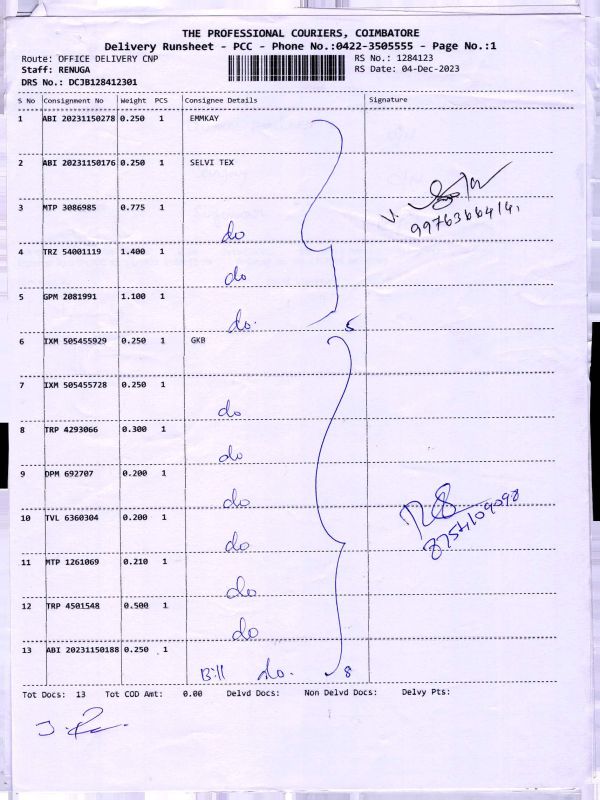 THE PROFESSIONAL COURIERS, COIMBATORE
Delivery Runsheet - PCC - Phone No.:0422-3505555 - Page No.:1
Route: OFFICE DELIVERY CNP RS No.: 1284123
Staff: RENUGA RS Date: 04-Dec-2023
DRS No.: DCJB128412301
S No Consignment No Weight PCS Consignee Details Signature
1 ABI 20231150278 0.250 1 EMMKAY
2 ABI 20231150176 0.250 1 SELVI TEX
3 MTP 3086985 0.775 1
do
4 TRZ 54001119 1.400 1
do
5 GPM 2081991 1.100 1
do. 5
6 IXM 505455929 0.250 1 GKB
7 IXM 505455728 0.250 1
do
8 TRP 4293066 0.300 1
do
9 DPM 692707 0.200 1
do
10 TVL 6360304 0.200 1
do
11 MTP 1261069 0.210 1
do
12 TRP 4501548 0.500 1
do
13 ABI 20231150188 0.250 1
Bill do. 8
Tot Docs: 13 Tot COD Amt: 0.00 Delvd Docs: Non Delvd Docs: Delvy Pts: